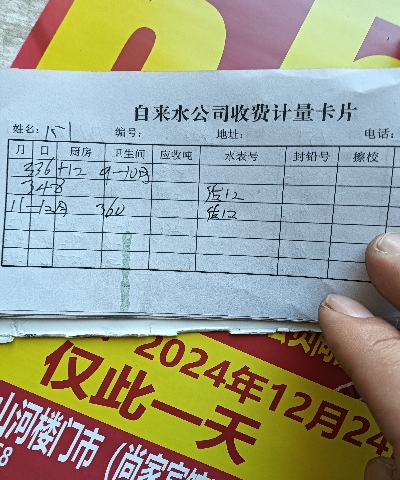 自来水公司收费计量卡片
姓名: 151 编号: 地址: 电话:
月 日 厨房 卫生间 应收吨 水表号 封铅号 擦校
336+12 9-10月
348 估12
11-12月 360 估12
2024年12月24
仅此一天
山河楼门市(尚家宾馆